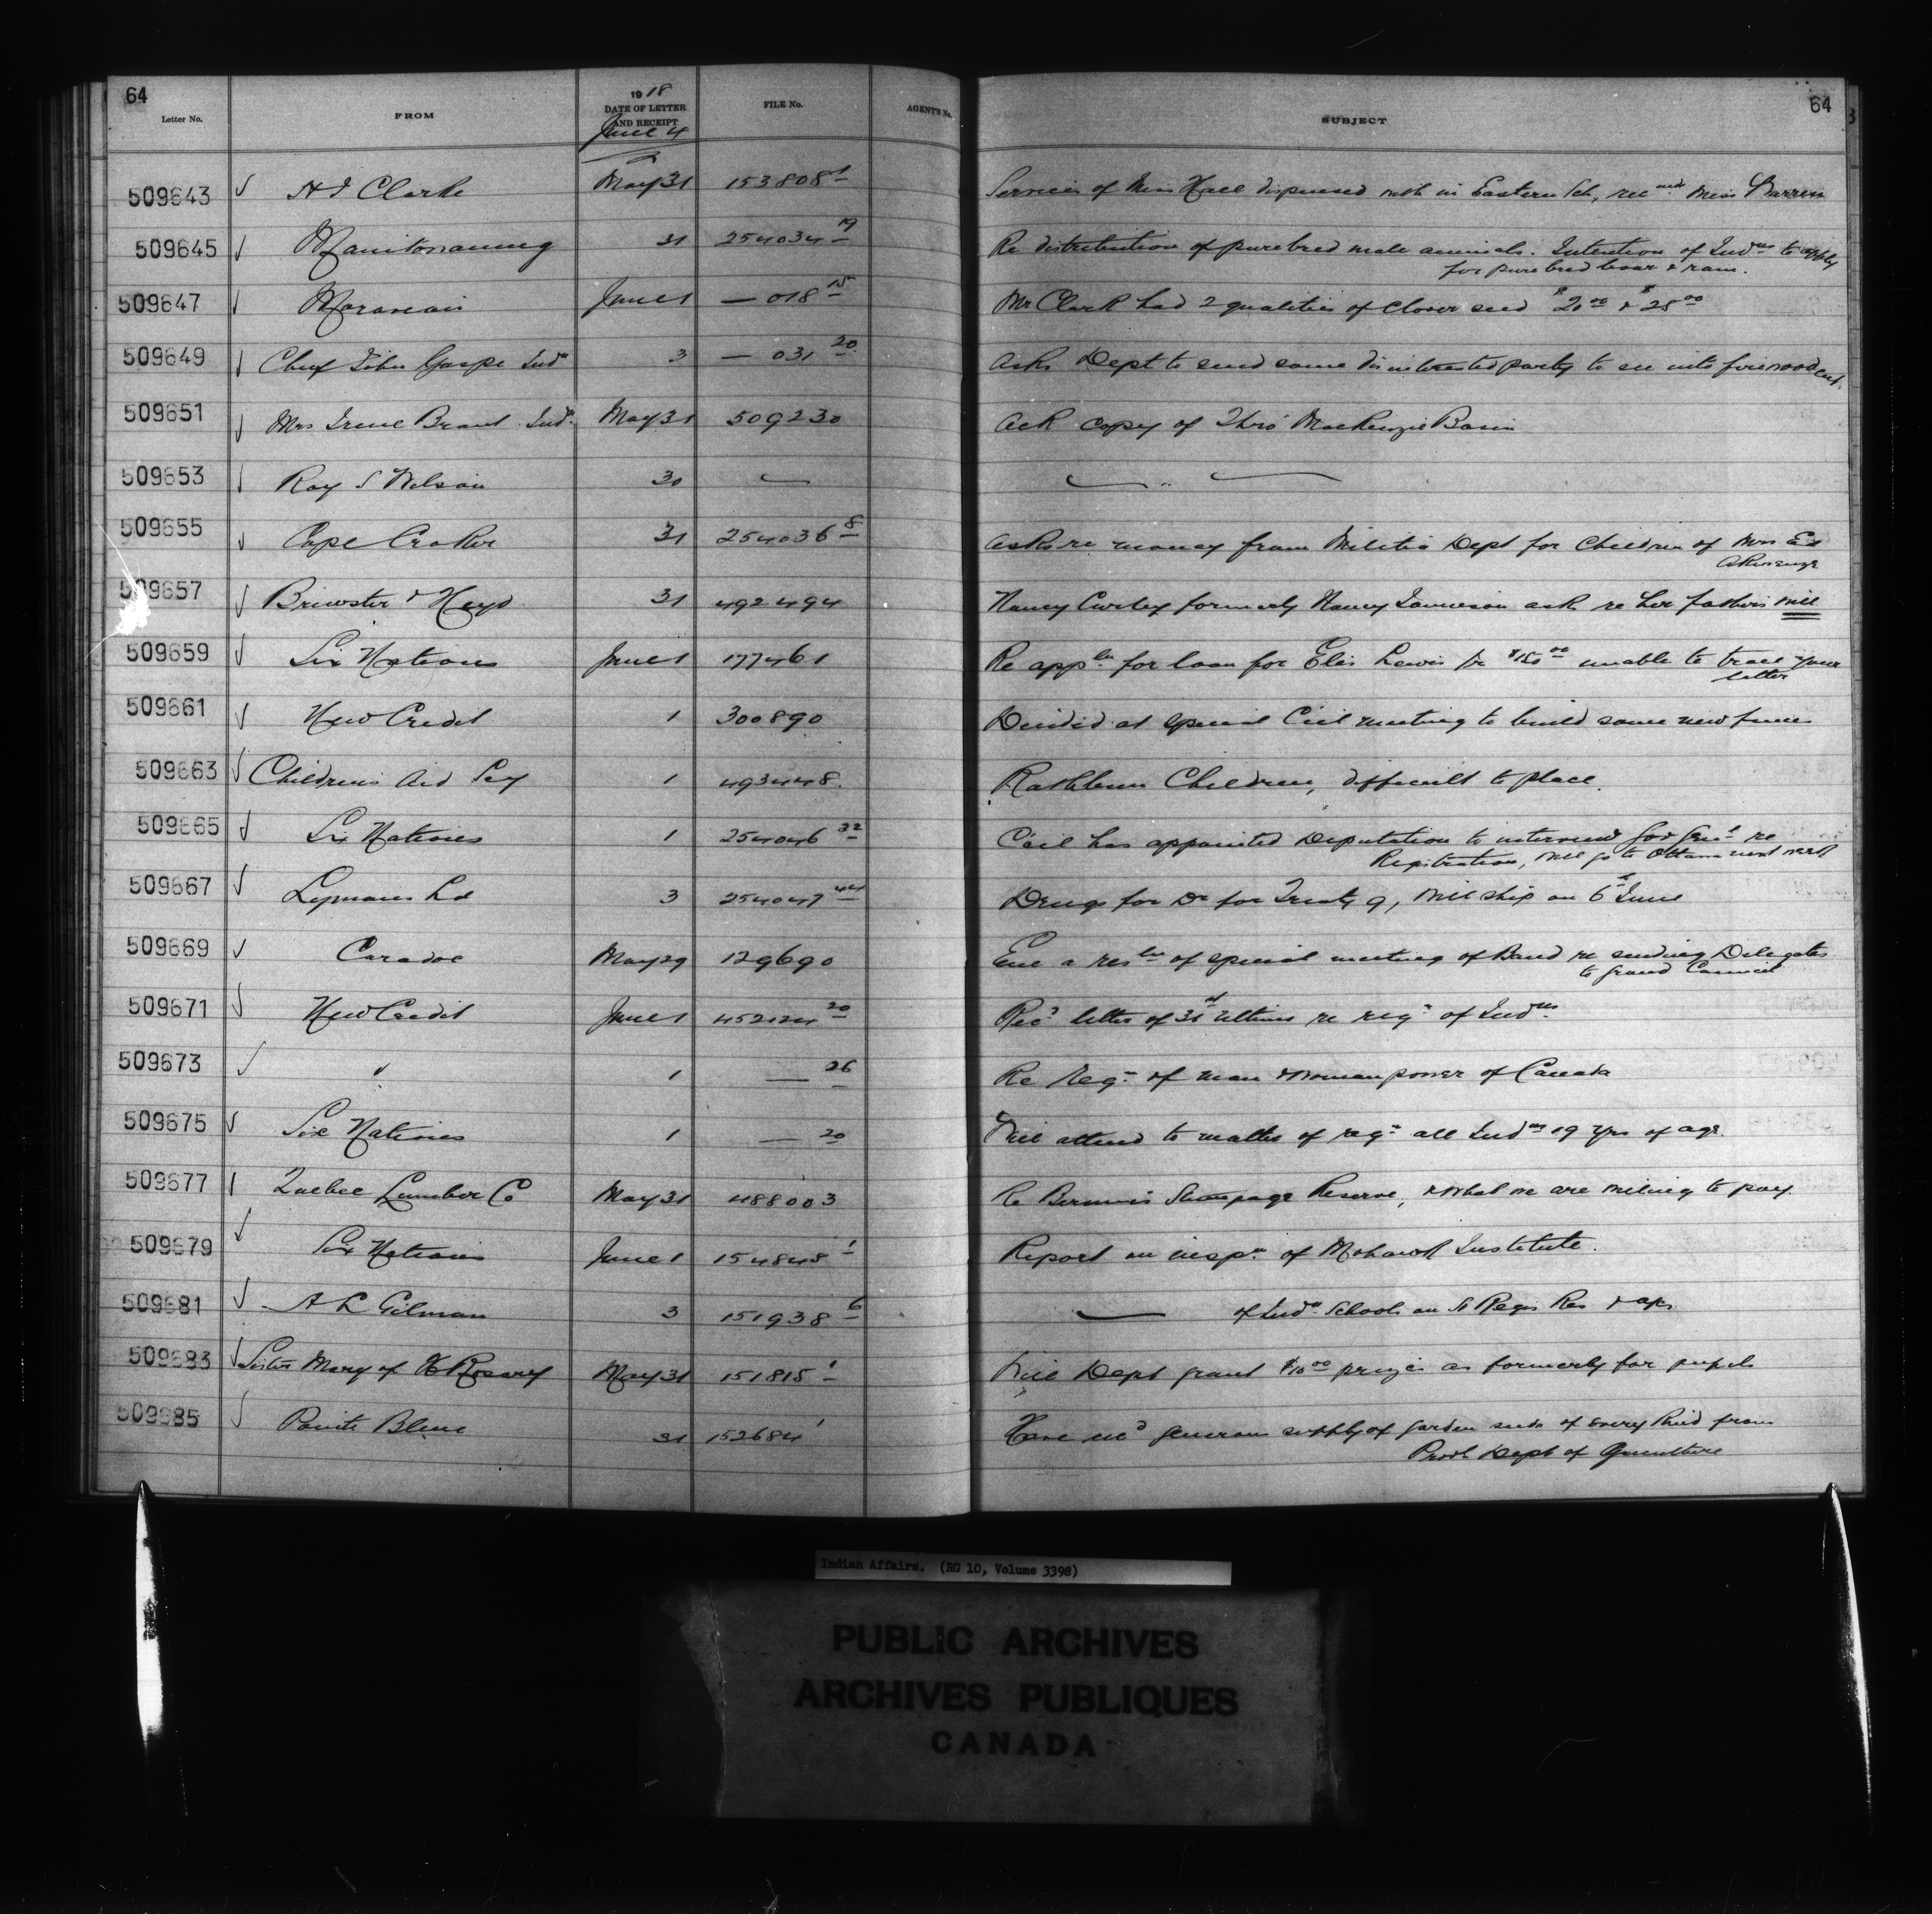 64
Letter No. FROM 1918 DATE OF LETTER AND RECEIPT FILE No. AGENT'S No. SUBJECT 64
June 4
509643 H J Clarke May 31 153808-1 Services of Miss Hall dispensed with in Eastern Sch, recmds Miss Barren
509645 Manitowaning 31 254034-19 Re distribution of purebred male animals. Intention of Indns to apply
for purebred boar & ram.
509647 Moravian June 1 — 018-15 Mr Clark had 2 qualities of clover seed $20.00 & $25.00
509649 Chief John Gaspe Indn 3 — 031-20 Asks Dept to send some disinterested party to see into firewood cut
509651 Mrs Irene Brant Indn May 31 509230 Ack copy of Thro' Mackenzie Basin
509653 Roy S Wilson 30 — — " —
509655 Cape Croker 31 254036-8 Asks re money from Militia Dept for Children of Mrs Ed
Akiwenzie
509657 Brewster & Heyd 31 492494 Nancy Curley formerly Nancy Jamieson ask re her father's will
509659 Six Nations June 1 177461 Re appln for loan for Elis Lewis for $150.00 unable to trace your
letter
509661 New Credit 1 300890 Decided at special Ccil meeting to build some new fence
509663 Childrens Aid Socy 1 493448 Rathbun Children, difficult to place.
509665 Six Nations 1 254046-32 Ccil has appointed Deputation to interview Gov Genl re
Registration, will go to Ottawa next week
509667 Lymans Ld 3 254047-44 Drugs for Dr for Treaty 9, will ship on 6th June
509669 Caradoc May 29 129690 Enc a resln of special meeting of Band re sending Delegates
to Grand Council
509671 New Credit June 1 452124-20 Recd letter of 31st ultimo re regn of Indns
509673 " 1 — 26 Re regn of man & woman power of Canada
509675 Six Nations 1 — 20 Will attend to matter of regn all Indns 19 yrs of age.
509677 Quebec Lumber Co May 31 488003 Re Bersimis Stumpage Reserve, & what we are willing to pay.
509679 Six Nations June 1 154848-1 Report on inspn of Mohawk Institute.
509681 A L Gilman 3 151938-6 — of Indn Schools on St Regis Res & aps
509683 Sister Mary of H Rosary May 31 151815-1 Will Dept grant $10.00 prizes as formerly for pupils
509685 Pointe Bleue 31 152684-1 Have recd generous supply of garden seeds of every kind from
Provl Dept of Agriculture
Indian Affairs. (RG 10, Volume 3398)
PUBLIC ARCHIVES
ARCHIVES PUBLIQUES
CANADA